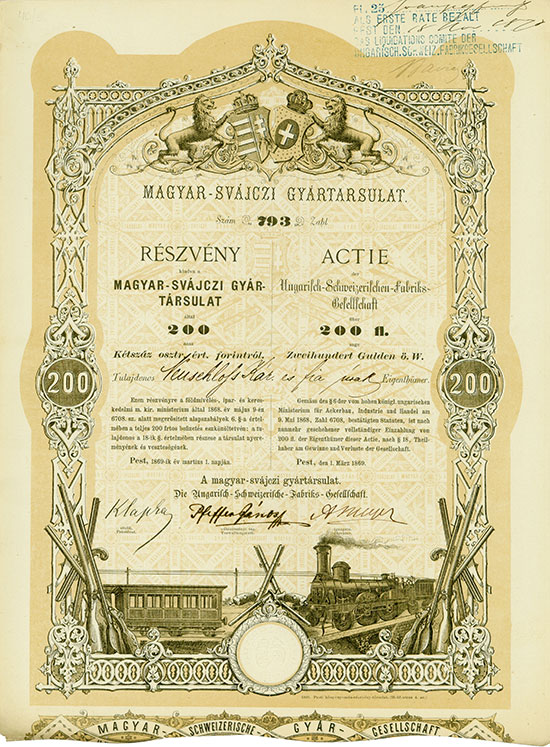 Fl. 25
ALS ERSTE RATE BEZALT
PEST DEN
DAS LIQUIDATIONS COMITE DER
UNGARISCH. SCHWEIZ. FABRIKGESELLSCHAFT
MAGYAR-SVÁJCZI GYÁRTARSULAT.
Szám 793 Zahl
RÉSZVÉNY
kiadva a
MAGYAR-SVÁJCZI GYÁR-
TÁRSULAT
által
200
azaz
Kétszáz osztr. ért. forintról,
ACTIE
der
Ungarisch-Schweizerischen-Fabriks-
Gesellschaft
über
200 fl.
sage
Zweihundert Gulden ö. W.
Tulajdonos Neuschloss Kár. és fia Eigenthümer.
200
200
Ezen részvényre a földmivelés-, ipar- és keres-
kedelmi m. kir. ministerium által 1868. év május 9-én
6708. sz. alatt megerősitett alapszabályok 6. §-a értelmé-
ben a teljes 200 frtos befizetés eszközöltetvén: a tu-
lajdonos a 18-ik §. értelmében részese a társulat nyere-
ményének és veszteségének.
Pest, 1869-ik év martius 1. napján.
Gemäss des § 6 der vom hohen königl. ungarischen
Ministerium für Ackerbau, Industrie und Handel am
9. Mai 1868, Zahl 6708, bestätigten Statuten, ist nach
nunmehr geschehener vollständiger Einzahlung von
200 fl. der Eigenthümer dieser Actie, nach § 18, Theil-
haber am Gewinne und Verluste der Gesellschaft.
Pest, den 1. März 1869.
A magyar-svájczi gyártársulat.
Die Ungarisch-Schweizerische-Fabriks-Gesellschaft.
Klapka Pfeiffer János A Meyer
200
200
MAGYAR SCHWEIZERISCHE GYÁR GESELLSCHAFT